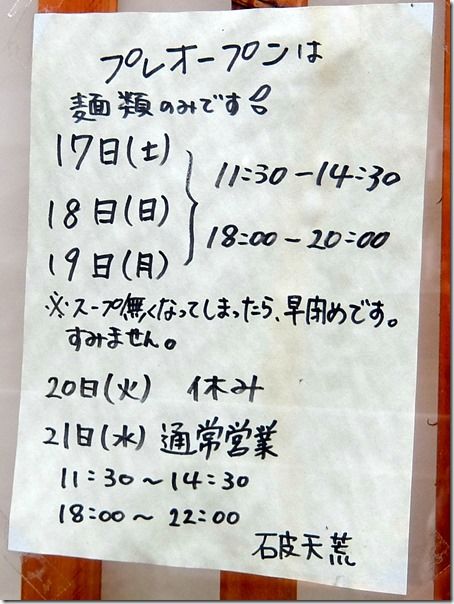 プレオープンは
麺類のみです!
17日(土)
18日(日)
19日(月)
11:30-14:30
18:00-20:00
※スープ無くなってしまったら、早閉めです。
すみません。
20日(火) 休み
21日(水) 通常営業
11:30~14:30
18:00~22:00
破天荒